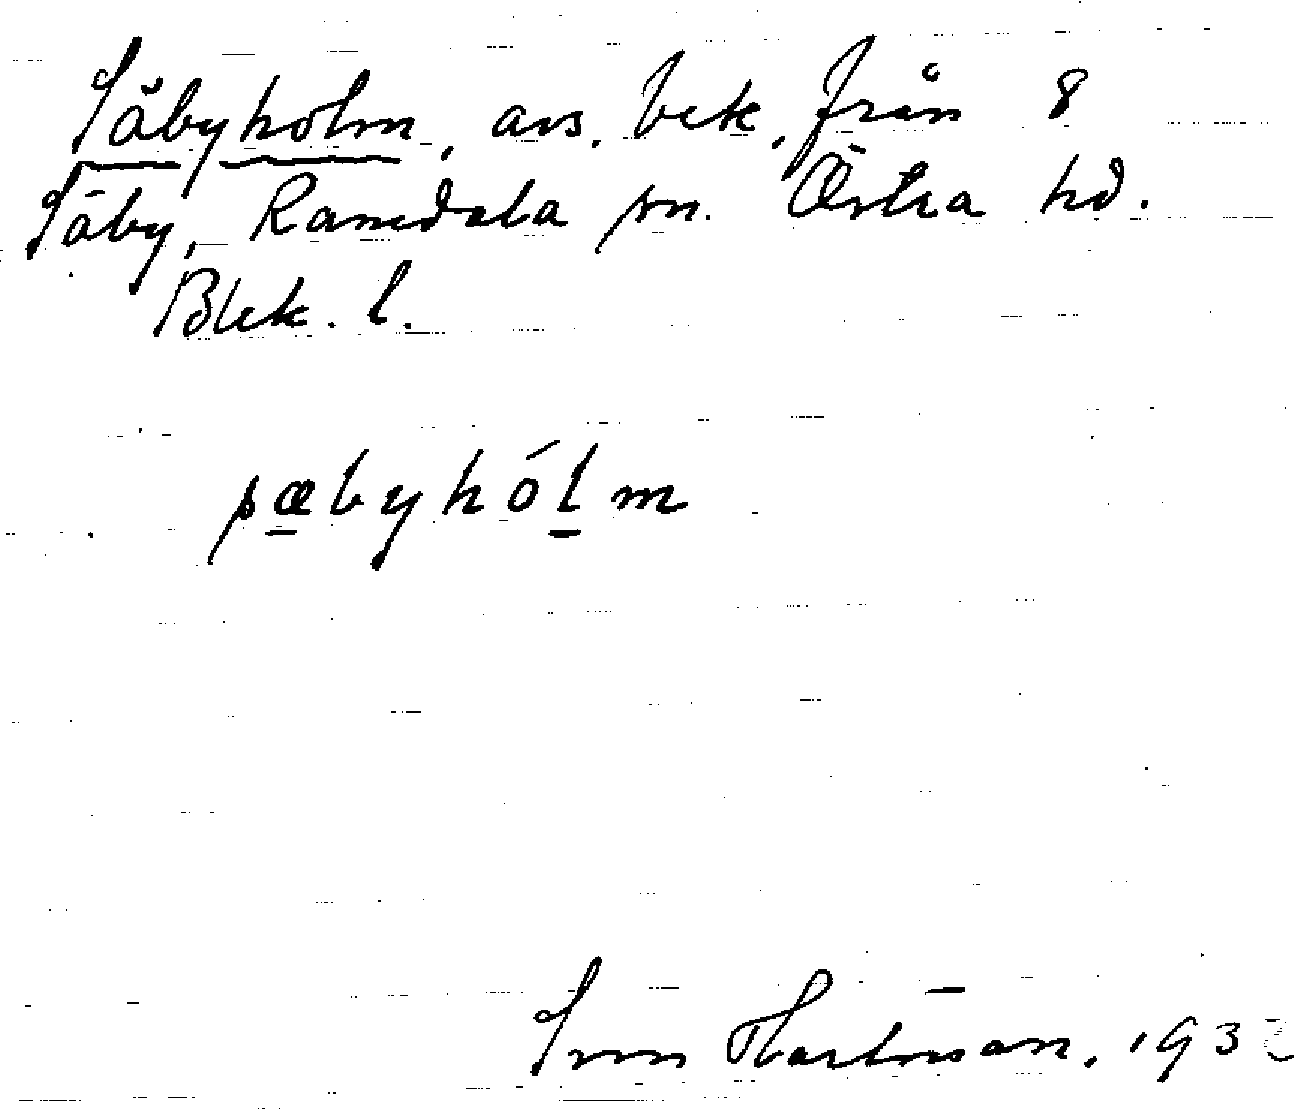 Säbyholm, avs. bek. från 8
Säby, Ramdala sn. Östra hd.
Blek. l.
sæbyhólm
Sven Hartman. 1932